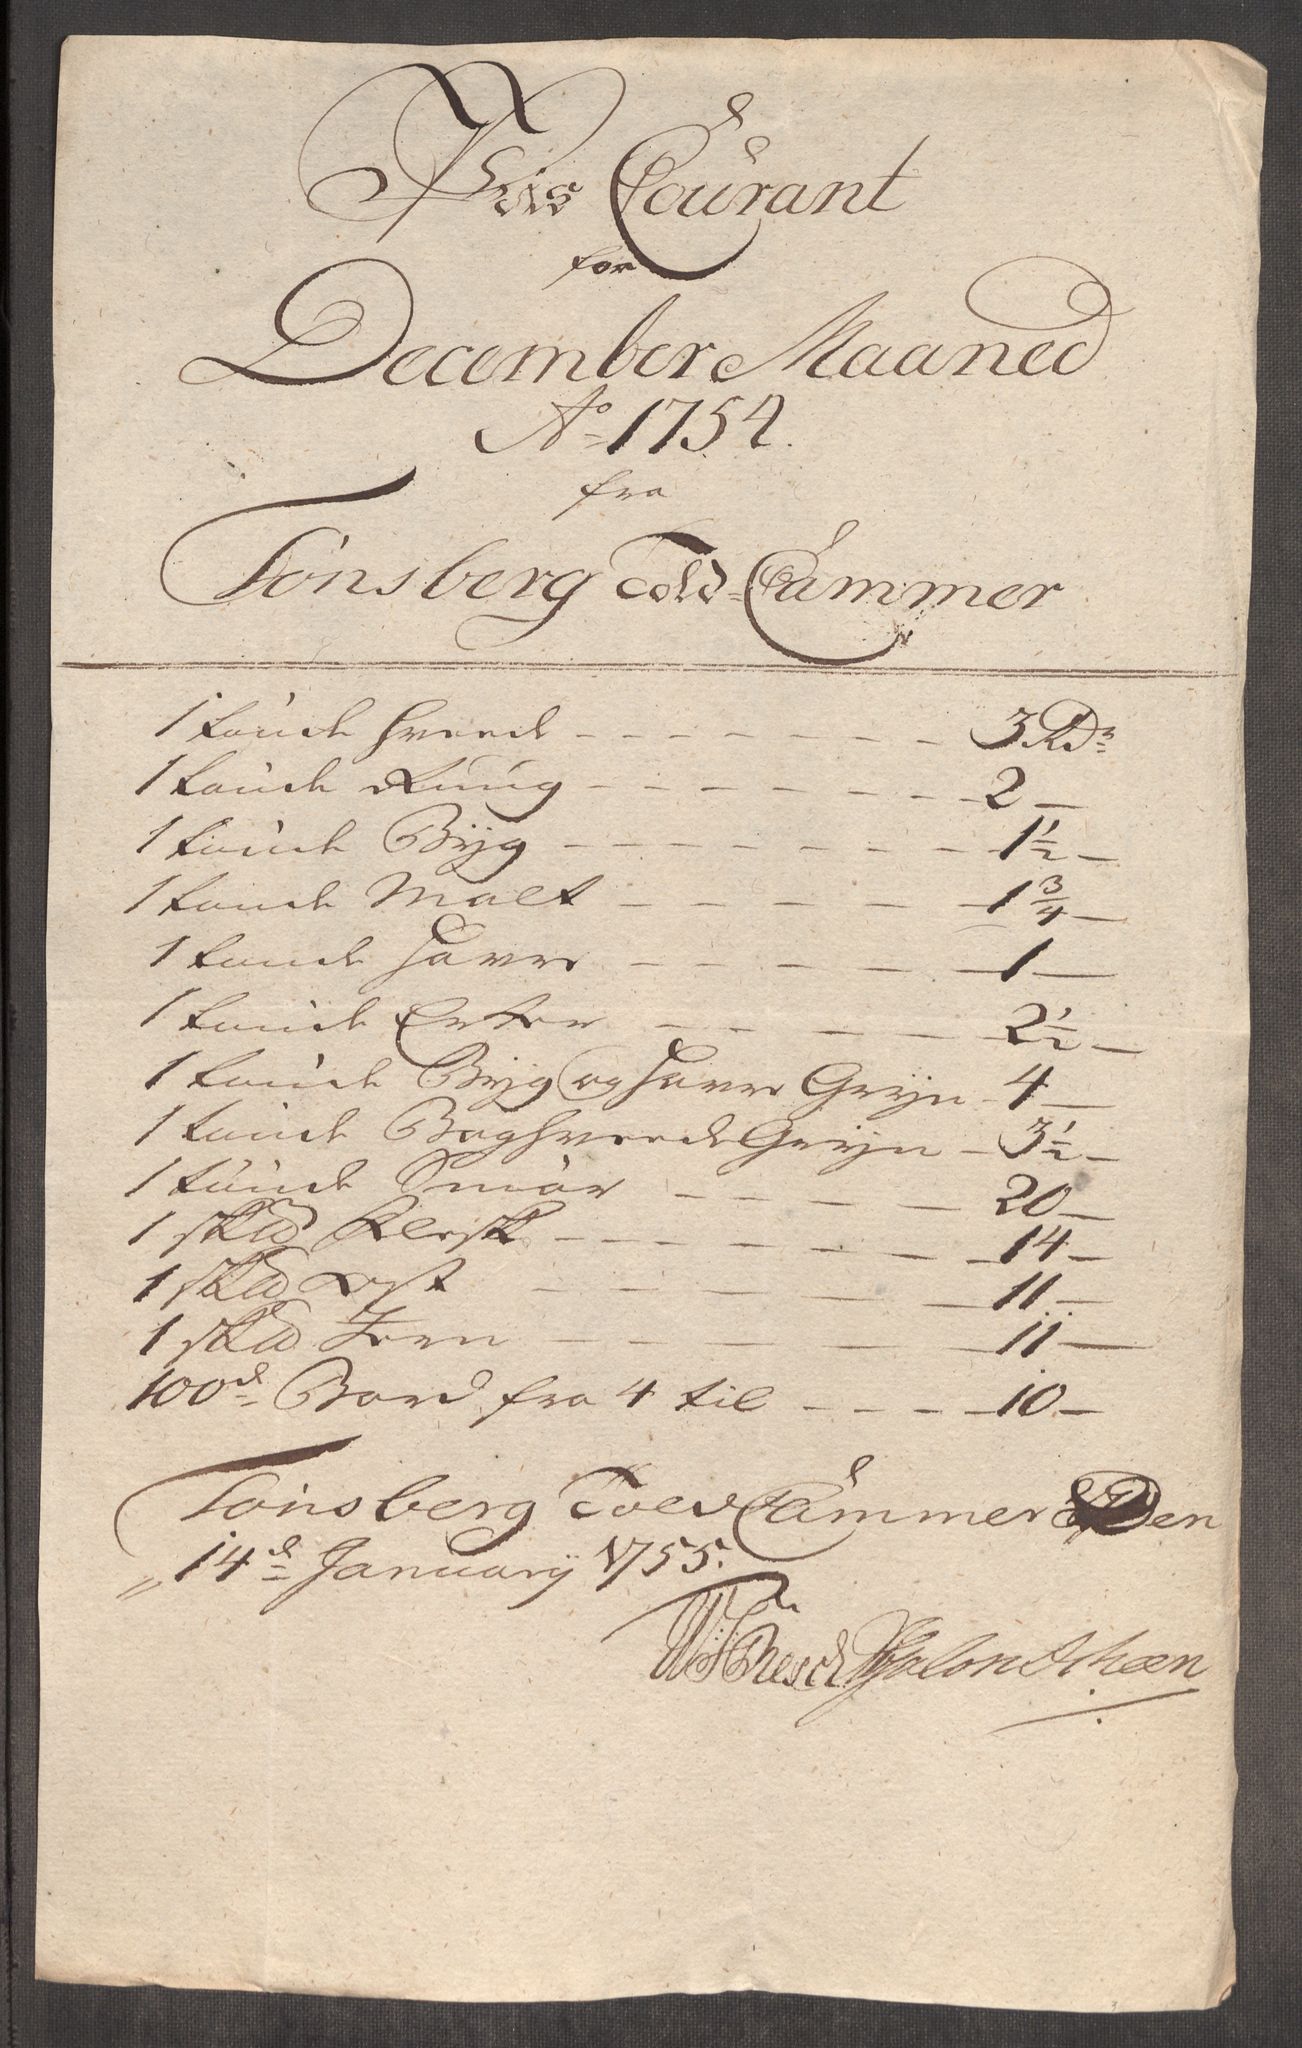 Priis Courant
for
December Maaned
Ao 1754.
fra
Tönsberg Told-Cammer
1 tønde Hveede - - - - - - - 3 Rdr
1 tønde Rüug - - - - - - - 2 -
1 tønde Byg - - - - - - - 1 1/2 -
1 tønde Malt - - - - - 1 3/4 -
1 tønde Havre - - - - - 1 -
1 tønde Erter - - - - - 2 1/2 -
1 tønde Byg og Havre Gryn - 4 -
1 tønde Boghveede Gryn - 3 1/2 -
1 tønde Smör - - - - 20 -
1 sk℔d Flesk - - - - - - 14 -
1 sk℔d Ost - - - - - - 11 -
1 sk℔d Jern - - - - - 11 -
100d Bord fra 4 til - - - - 10 -
Tönsberg Told Cammer Den
14d January 1755.